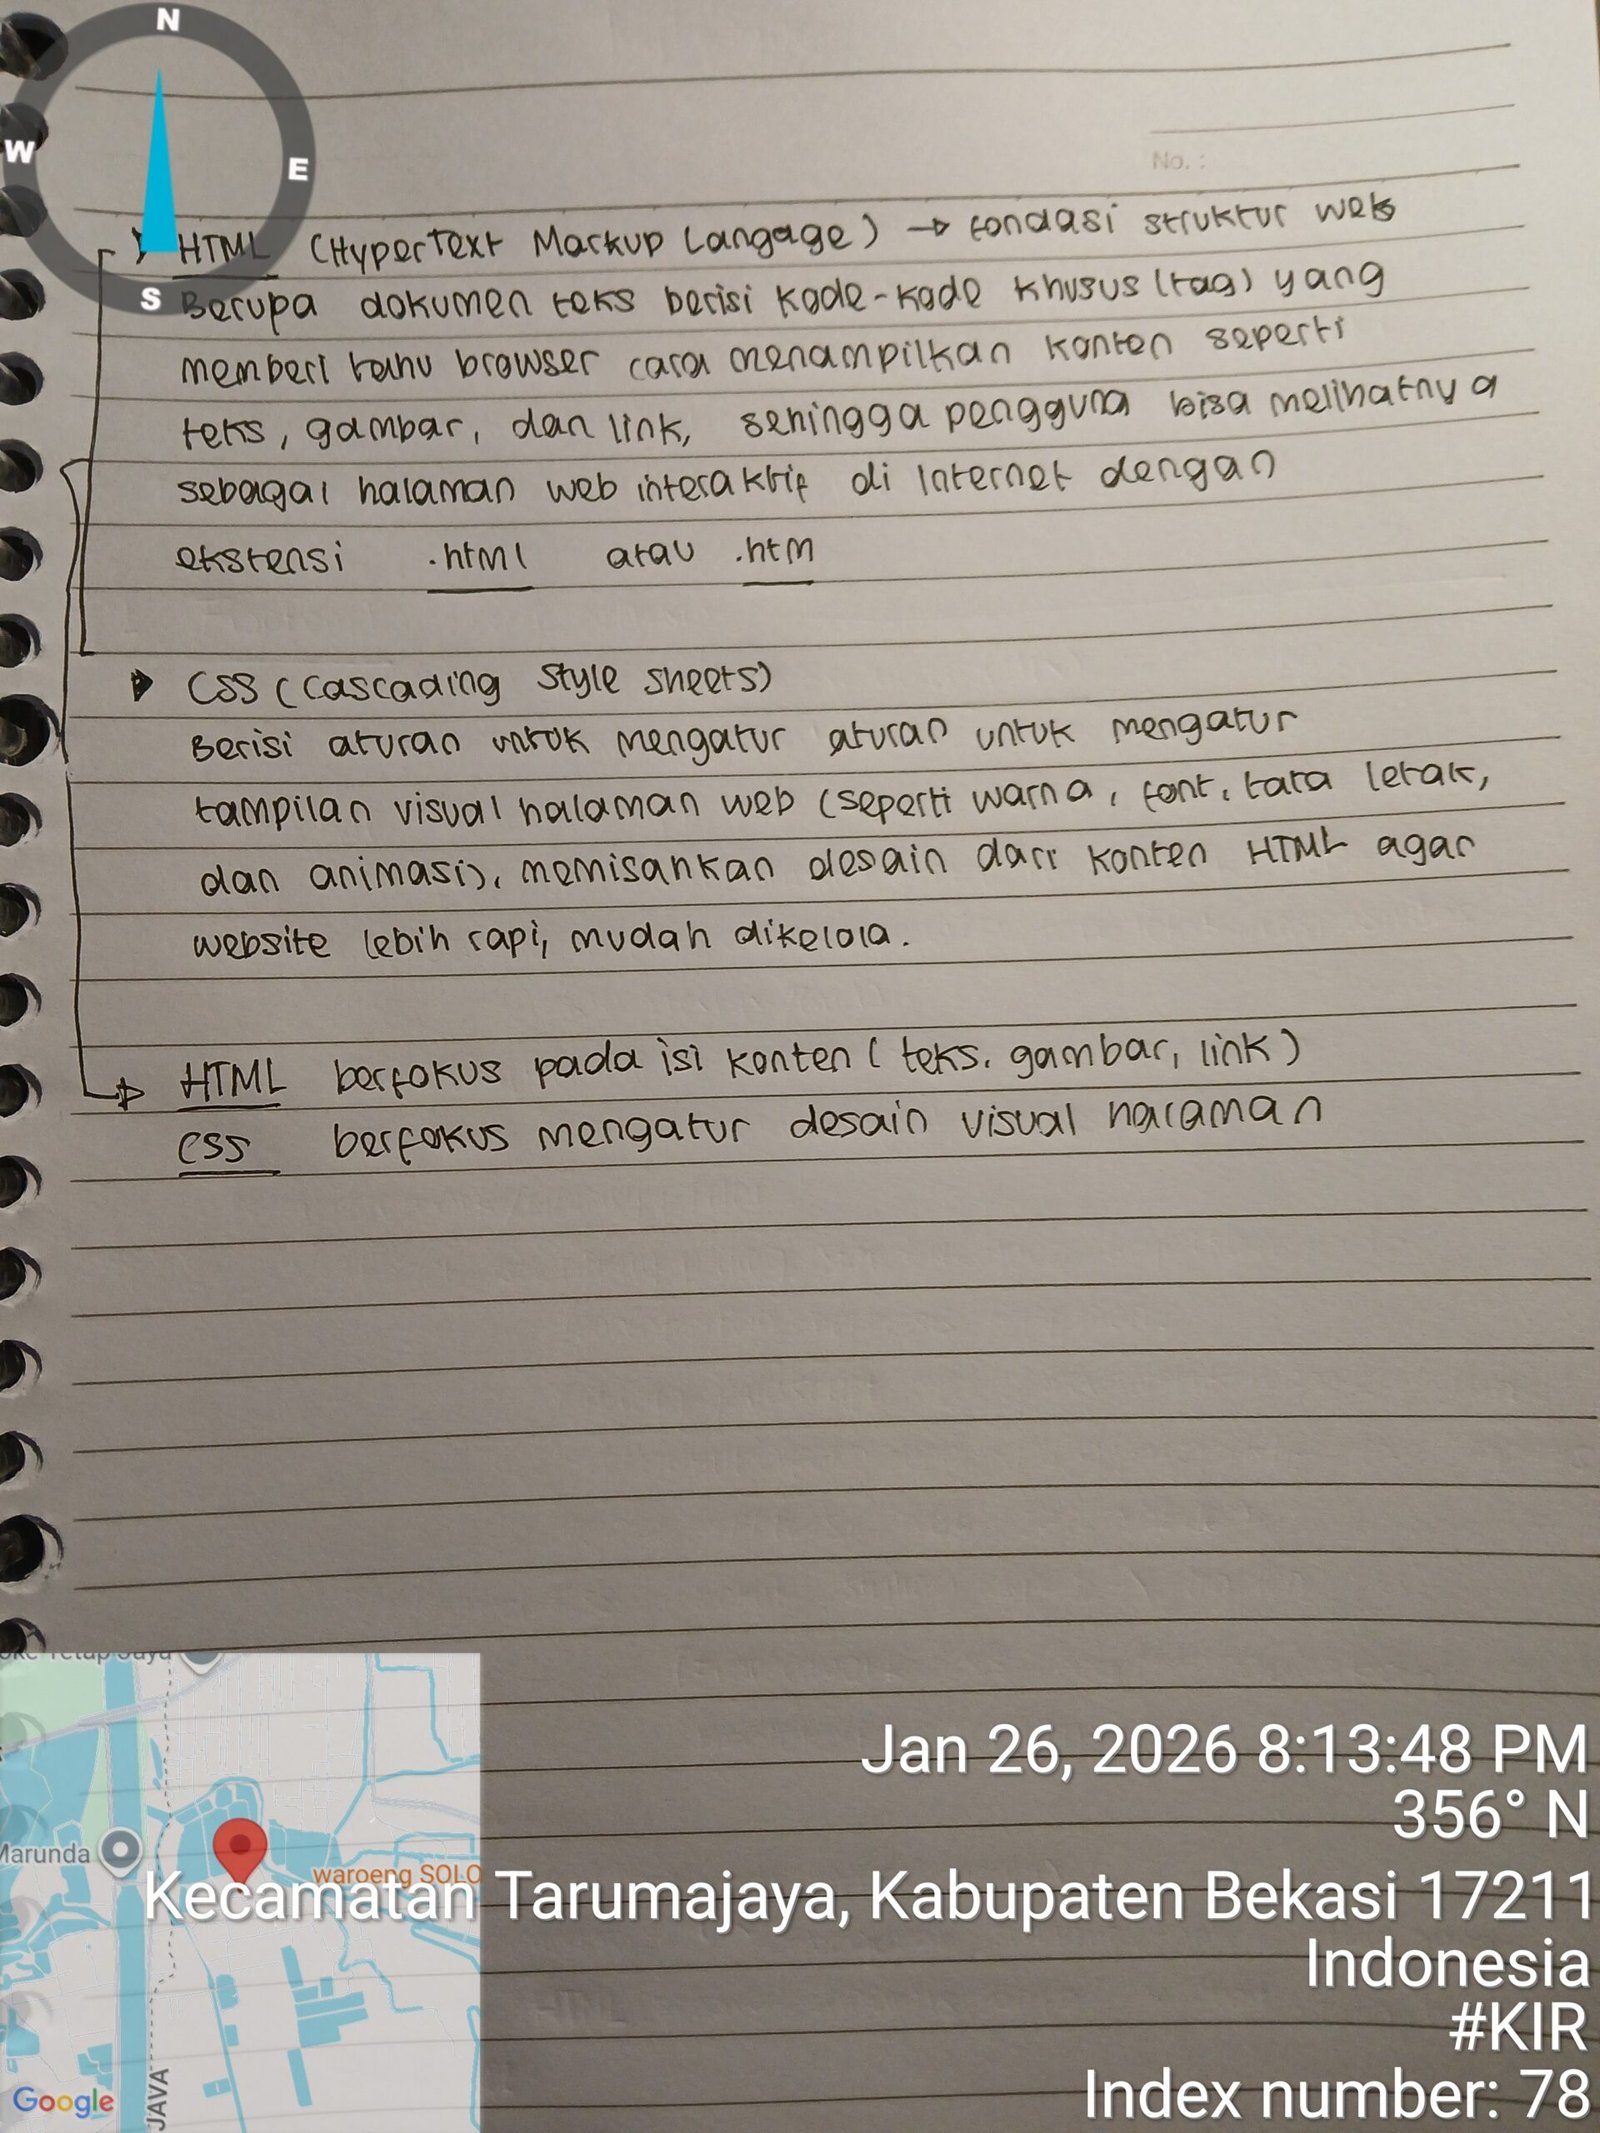 N
W
E
S
No. :
HTML (HyperText Markup Langage) → fondasi struktur web
Berupa dokumen teks berisi kode-kode khusus (tag) yang
memberi tahu browser cara menampilkan konten seperti
teks, gambar, dan link, sehingga pengguna bisa melihatnya
sebagai halaman web interaktif di Internet dengan
ekstensi .html atau .htm
CSS (Cascading Style Sheets)
Berisi aturan untuk mengatur aturan untuk mengatur
tampilan visual halaman web (seperti warna, font, tata letak,
dan animasi), memisahkan desain dari konten HTML agar
website lebih rapi, mudah dikelola.
HTML berfokus pada isi konten (teks, gambar, link)
CSS berfokus mengatur desain visual halaman
Marunda
waroeng SOLO
JAVA
Google
Jan 26, 2026 8:13:48 PM
356° N
Kecamatan Tarumajaya, Kabupaten Bekasi 17211
Indonesia
#KIR
Index number: 78